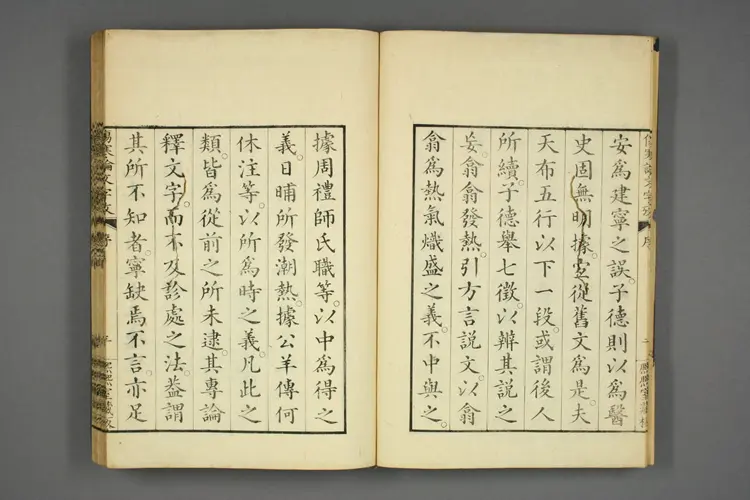 安爲建寧之誤。子德則以爲醫
史固無明據。宜從舊文爲是。夫
天布五行以下一段。或謂後人
所續。子德舉七徵。以辯其說之
妄。翕翕發熱。引方言說文。以翕
翕爲熱氣熾盛之義。不中與之。
據周禮師氏職等。以中爲得之
義。日晡所發潮熱。據公羊傳何
休注等。以所爲時之義。凡此之
類。皆爲從前之所未逮。其專論
釋文字。而不及診處之法。葢謂
其所不知者。寧缺焉不言。亦足
傷寒論文字攷 序